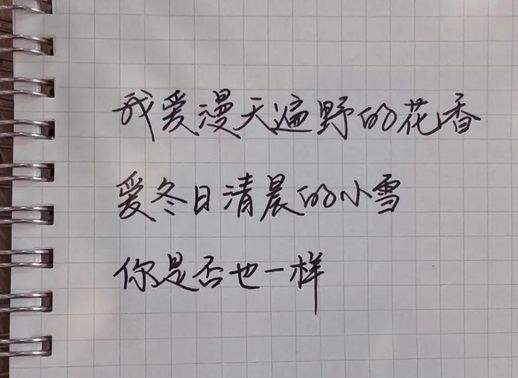 我爱漫天遍野的花香
爱冬日清晨的小雪
你是否也一样